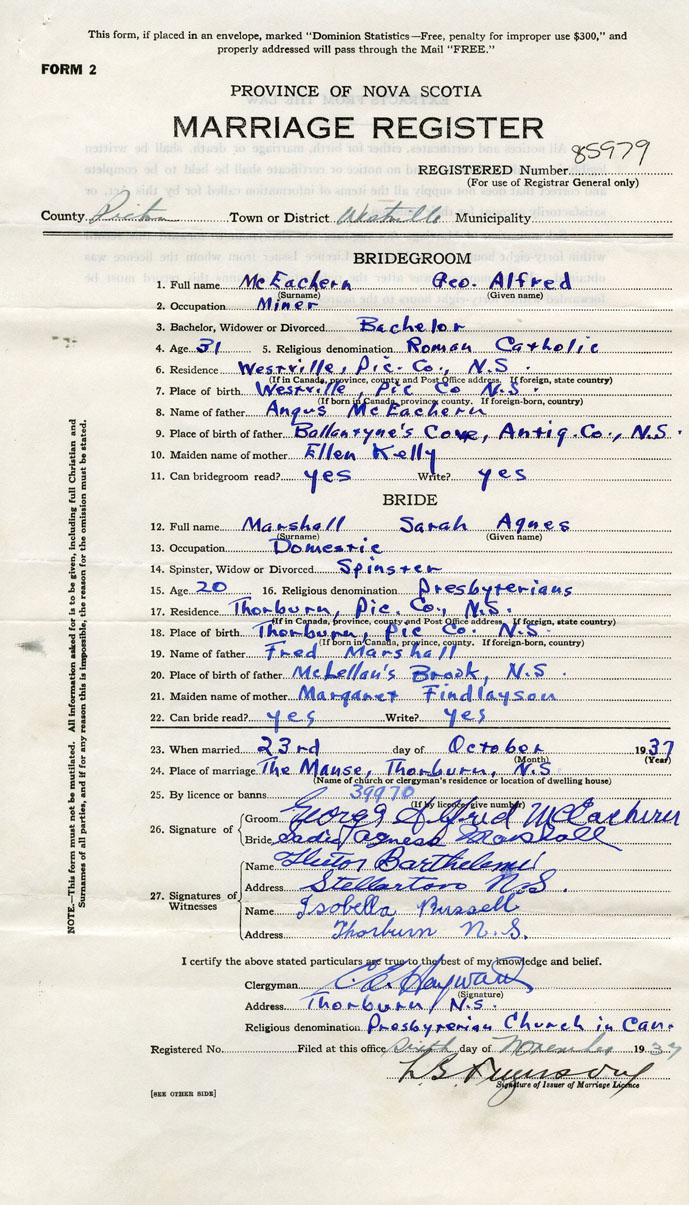 This form, if placed in an envelope, marked "Dominion Statistics—Free, penalty for improper use $300," and
properly addressed will pass through the Mail "FREE."
FORM 2
PROVINCE OF NOVA SCOTIA
MARRIAGE REGISTER
REGISTERED Number 85979
(For use of Registrar General only)
County Pictou Town or District Westville Municipality
BRIDEGROOM
1. Full name McEachern Geo. Alfred
(Surname) (Given name)
2. Occupation Miner
3. Bachelor, Widower or Divorced Bachelor
4. Age 31 5. Religious denomination Roman Catholic
6. Residence Westville, Pic. Co., N.S.
(If in Canada, province, county and Post Office address. If foreign, state country)
7. Place of birth Westville, Pic Co N.S.
(If born in Canada, province, county. If foreign-born, country)
8. Name of father Angus McEachern
9. Place of birth of father Ballantyne's Cove, Antig. Co., N.S.
10. Maiden name of mother Ellen Kelly
11. Can bridegroom read? yes Write? yes
BRIDE
12. Full name Marshall Sarah Agnes
(Surname) (Given name)
13. Occupation Domestic
14. Spinster, Widow or Divorced Spinster
15. Age 20 16. Religious denomination Presbyterians
17. Residence Thorburn, Pic. Co., N.S.
(If in Canada, province, county and Post Office address. If foreign, state country)
18. Place of birth Thorburn, Pic Co. N.S.
(If born in Canada, province, county. If foreign-born, country)
19. Name of father Fred Marshall
20. Place of birth of father McLellan's Brook, N.S
21. Maiden name of mother Margaret Findlayson
22. Can bride read? yes Write? yes
23. When married 23rd day of October 1937
(Month) (Year)
24. Place of marriage The Manse, Thorburn, N.S
(Name of church or clergyman's residence or location of dwelling house)
25. By licence or banns 39970
(If by licence, give number)
26. Signature of
Groom George Alfred McEachern
Bride Sadie Agness Marshall
27. Signatures of Witnesses
Name Hector Barthelemi
Address Stellarton N.S.
Name Isobella Russell
Address Thorburn N.S.
I certify the above stated particulars are true to the best of my knowledge and belief.
Clergyman C.E. Hayward
(Signature)
Address Thorburn, N.S.
Religious denomination Presbyterian Church in Can.
Registered No. Filed at this office Sixth day of November 1937
Signature of Issuer of Marriage Licence
[SEE OTHER SIDE]
NOTE.—This form must not be mutilated. All information asked for is to be given, including full Christian and
Surnames of all parties, and if for any reason this is impossible, the reason for the omission must be stated.